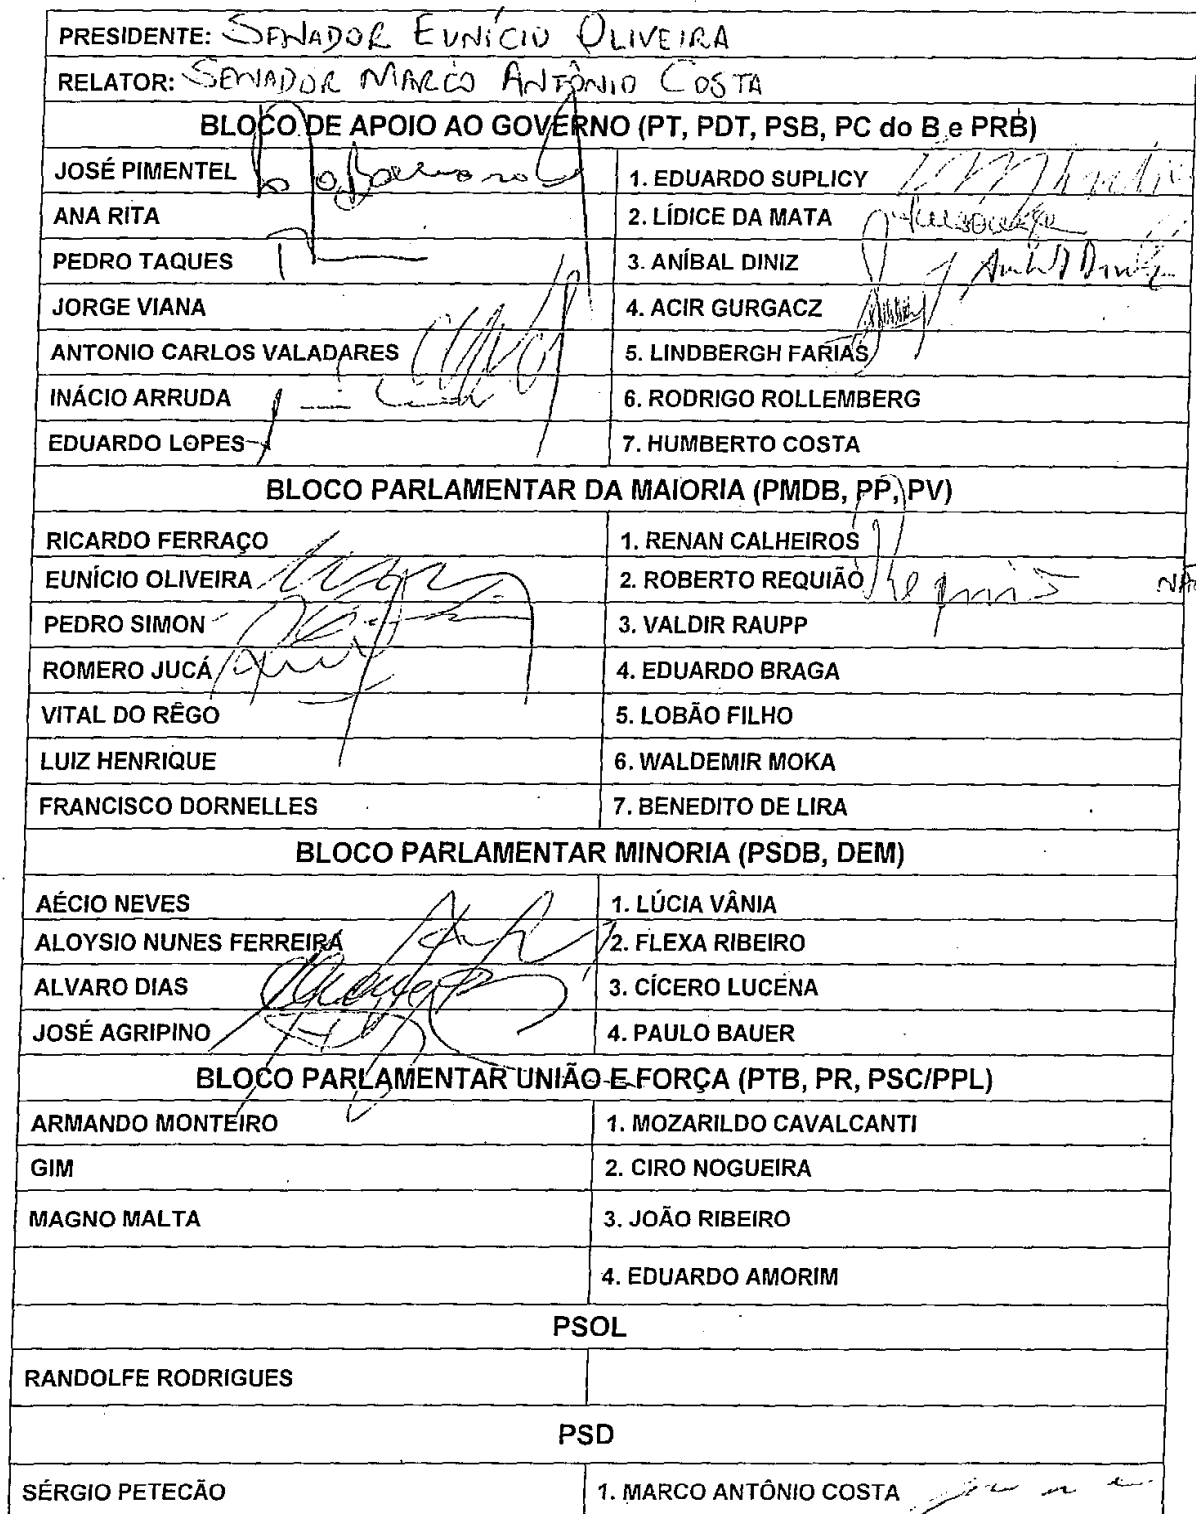 PRESIDENTE: SENADOR EUNÍCIO OLIVEIRA
RELATOR: SENADOR MARCO ANTÔNIO COSTA
BLOCO DE APOIO AO GOVERNO (PT, PDT, PSB, PC do B e PRB)
JOSÉ PIMENTEL 1. EDUARDO SUPLICY
ANA RITA 2. LÍDICE DA MATA
PEDRO TAQUES 3. ANÍBAL DINIZ Anibal Diniz
JORGE VIANA 4. ACIR GURGACZ
ANTONIO CARLOS VALADARES 5. LINDBERGH FARIAS
INÁCIO ARRUDA 6. RODRIGO ROLLEMBERG
EDUARDO LOPES 7. HUMBERTO COSTA
BLOCO PARLAMENTAR DA MAIORIA (PMDB, PP, PV)
RICARDO FERRAÇO 1. RENAN CALHEIROS
EUNÍCIO OLIVEIRA 2. ROBERTO REQUIÃO NÃO
PEDRO SIMON 3. VALDIR RAUPP
ROMERO JUCÁ 4. EDUARDO BRAGA
VITAL DO RÊGO 5. LOBÃO FILHO
LUIZ HENRIQUE 6. WALDEMIR MOKA
FRANCISCO DORNELLES 7. BENEDITO DE LIRA
BLOCO PARLAMENTAR MINORIA (PSDB, DEM)
AÉCIO NEVES 1. LÚCIA VÂNIA
ALOYSIO NUNES FERREIRA 2. FLEXA RIBEIRO
ALVARO DIAS 3. CÍCERO LUCENA
JOSÉ AGRIPINO 4. PAULO BAUER
BLOCO PARLAMENTAR UNIÃO E FORÇA (PTB, PR, PSC/PPL)
ARMANDO MONTEIRO 1. MOZARILDO CAVALCANTI
GIM 2. CIRO NOGUEIRA
MAGNO MALTA 3. JOÃO RIBEIRO
4. EDUARDO AMORIM
PSOL
RANDOLFE RODRIGUES
PSD
SÉRGIO PETECÃO 1. MARCO ANTÔNIO COSTA